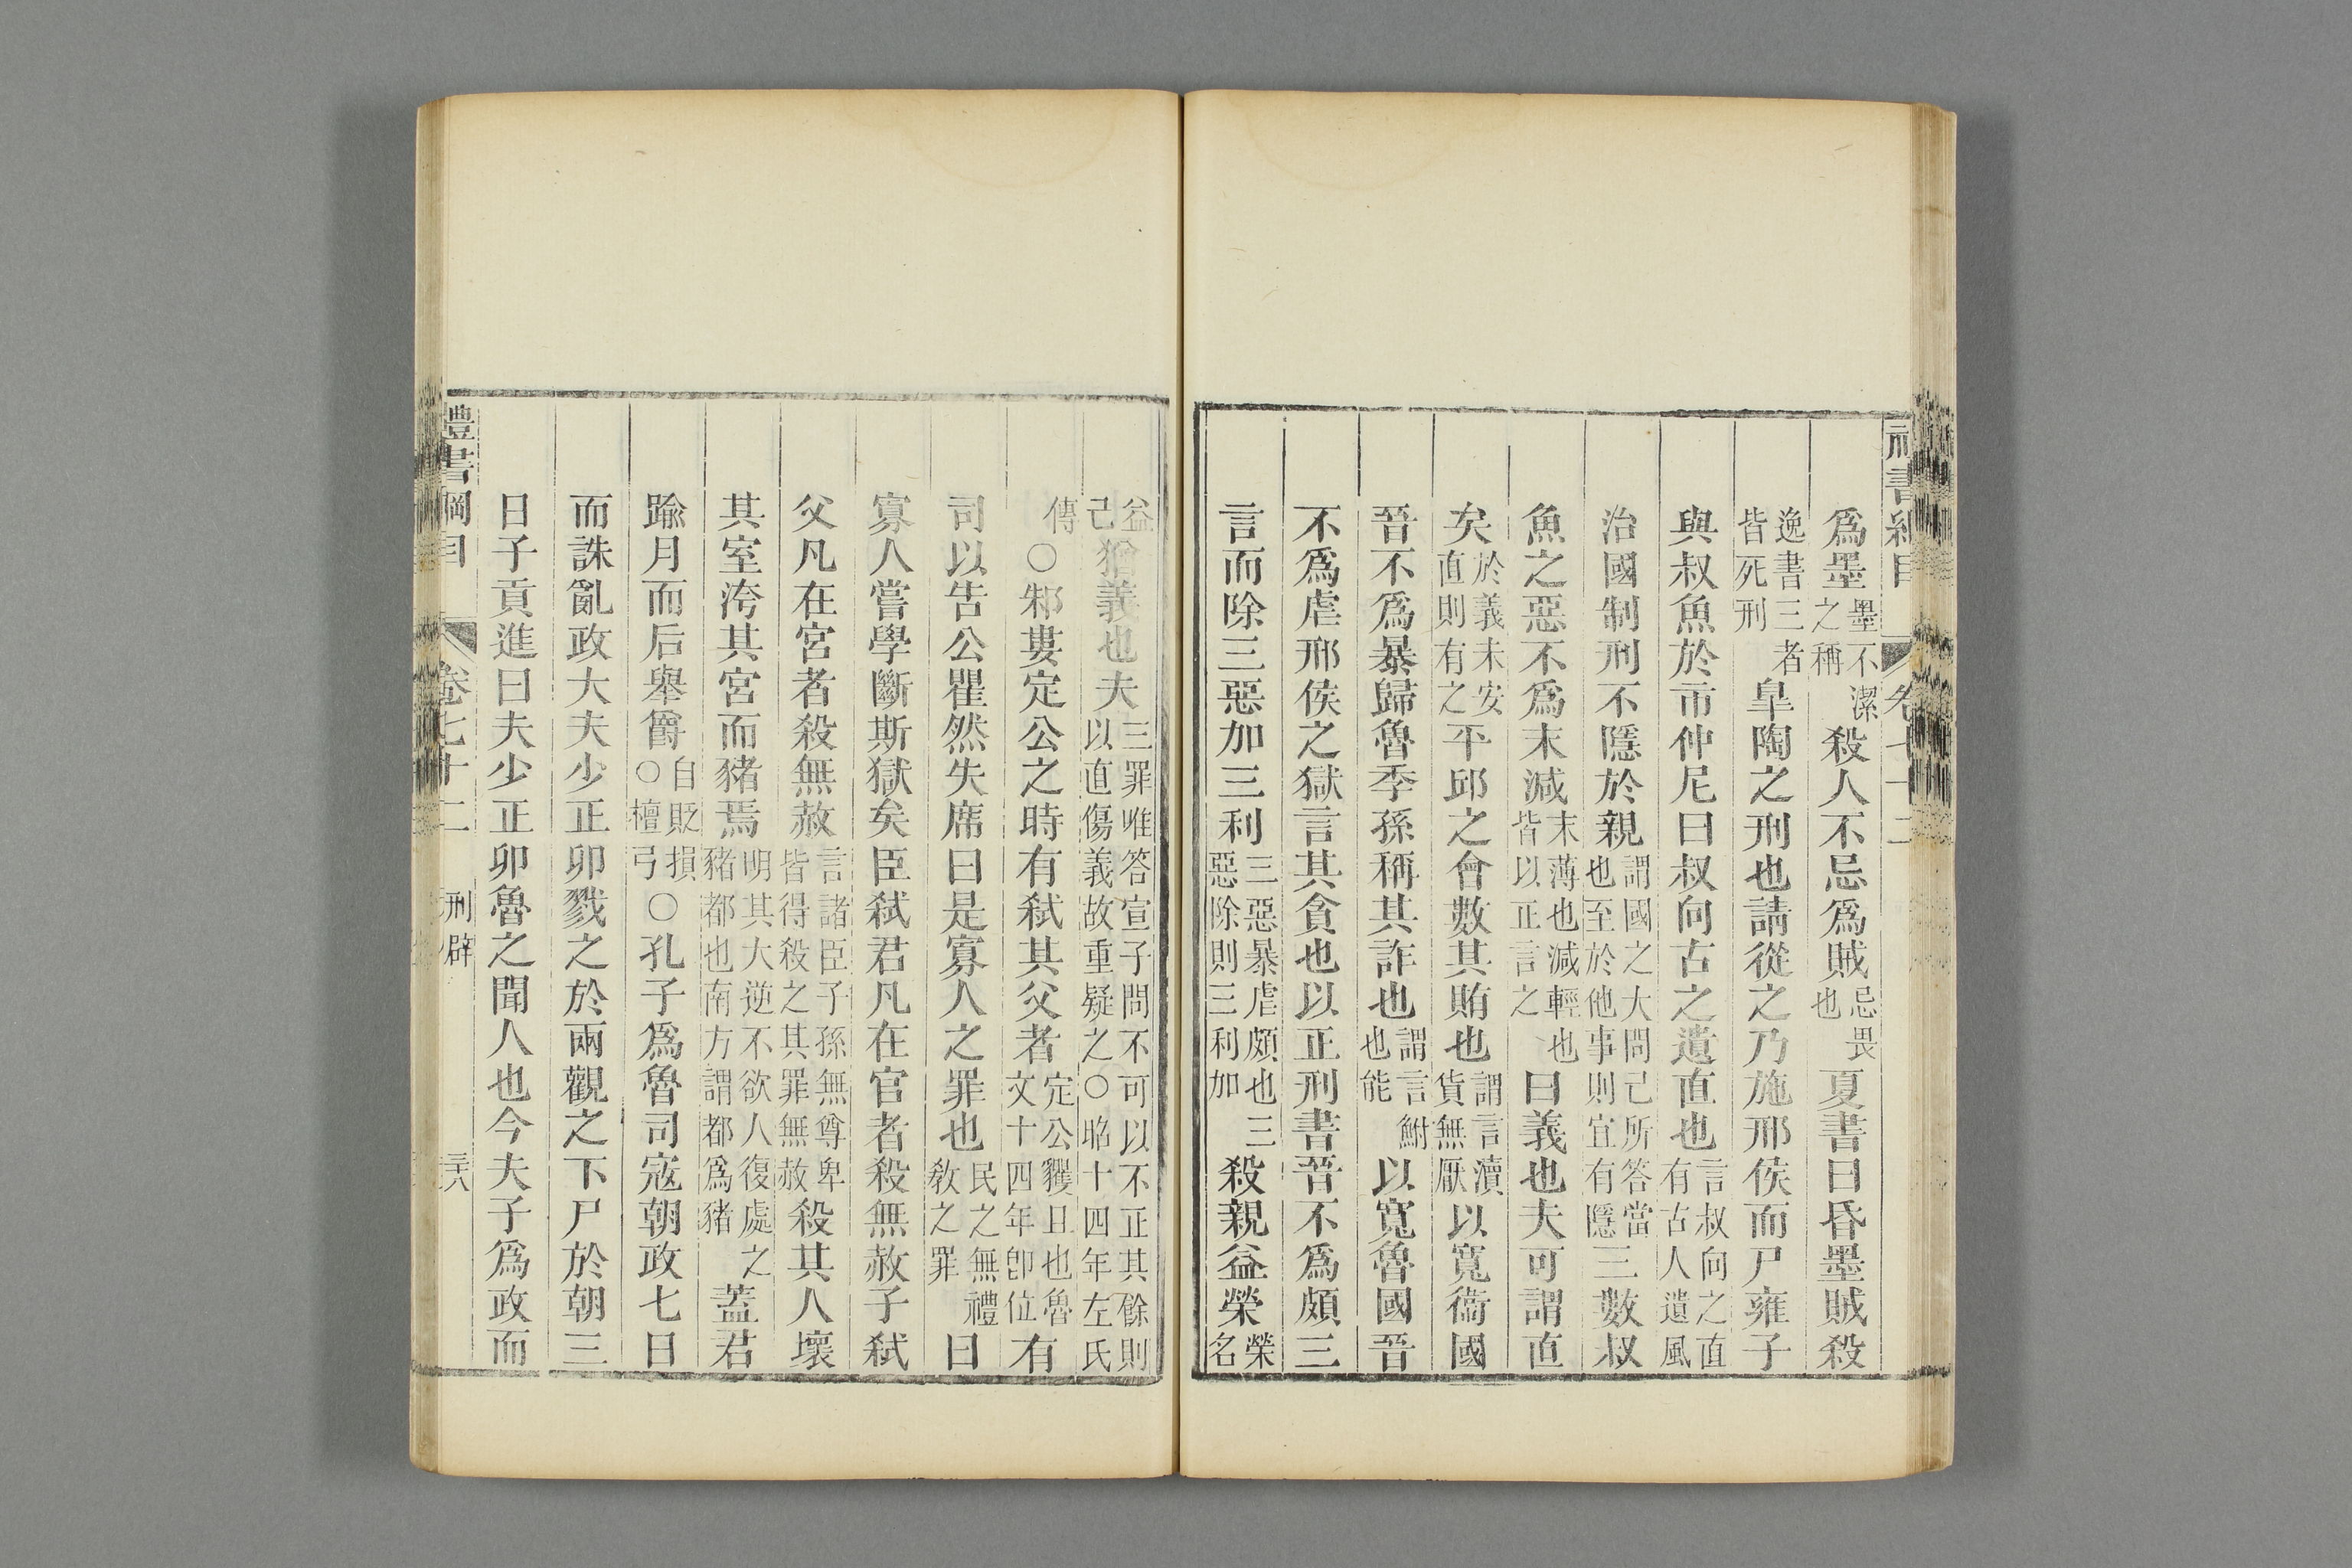 禮書綱目 卷七十二
爲墨墨不潔之稱殺人不忌爲賊忌畏也夏書曰昏墨賊殺
逸書三者皆死刑皐陶之刑也請從之乃施邢侯而尸雍子
與叔魚於市仲尼曰叔向古之遺直也言叔向之直有古人遺風
治國制刑不隱於親謂國之大問己所答當也至於他事則宜有隱三數叔
魚之惡不爲末減末薄也減輕也皆以正言之曰義也夫可謂直
矣於義未安直則有之平邱之會數其賄也謂言瀆貨無厭以寬衞國
晉不爲暴歸魯季孫稱其詐也謂言鮒也能以寬魯國晉
不爲虐邢侯之獄言其貪也以正刑書晉不爲頗三
言而除三惡加三利三惡暴虐頗也三惡除則三利加殺親益榮榮名
益己猶義也夫三罪唯答宣子問不可以不正其餘則以直傷義故重疑之○昭十四年左氏
傳○邾婁定公之時有弑其父者定公貜且也魯文十四年卽位有
司以告公瞿然失席曰是寡人之罪也民之無禮敎之罪曰
寡人嘗學斷斯獄矣臣弑君凡在官者殺無赦子弑
父凡在宮者殺無赦言諸臣子孫無尊卑皆得殺之其罪無赦殺其人壞
其室洿其宮而豬焉明其大逆不欲人復處之豬都也南方謂都爲豬蓋君
踰月而后舉爵自貶損○檀弓○孔子爲魯司寇朝政七日
而誅亂政大夫少正卯戮之於兩觀之下尸於朝三
日子貢進曰夫少正卯魯之聞人也今夫子爲政而
禮書綱目 卷七十二 刑辟 三十八